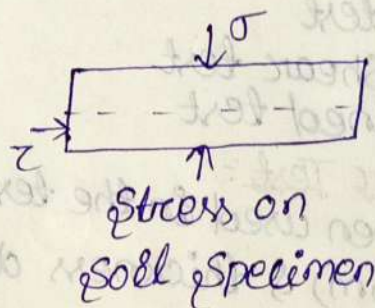 σ
τ
Stress on
Soil Specimen